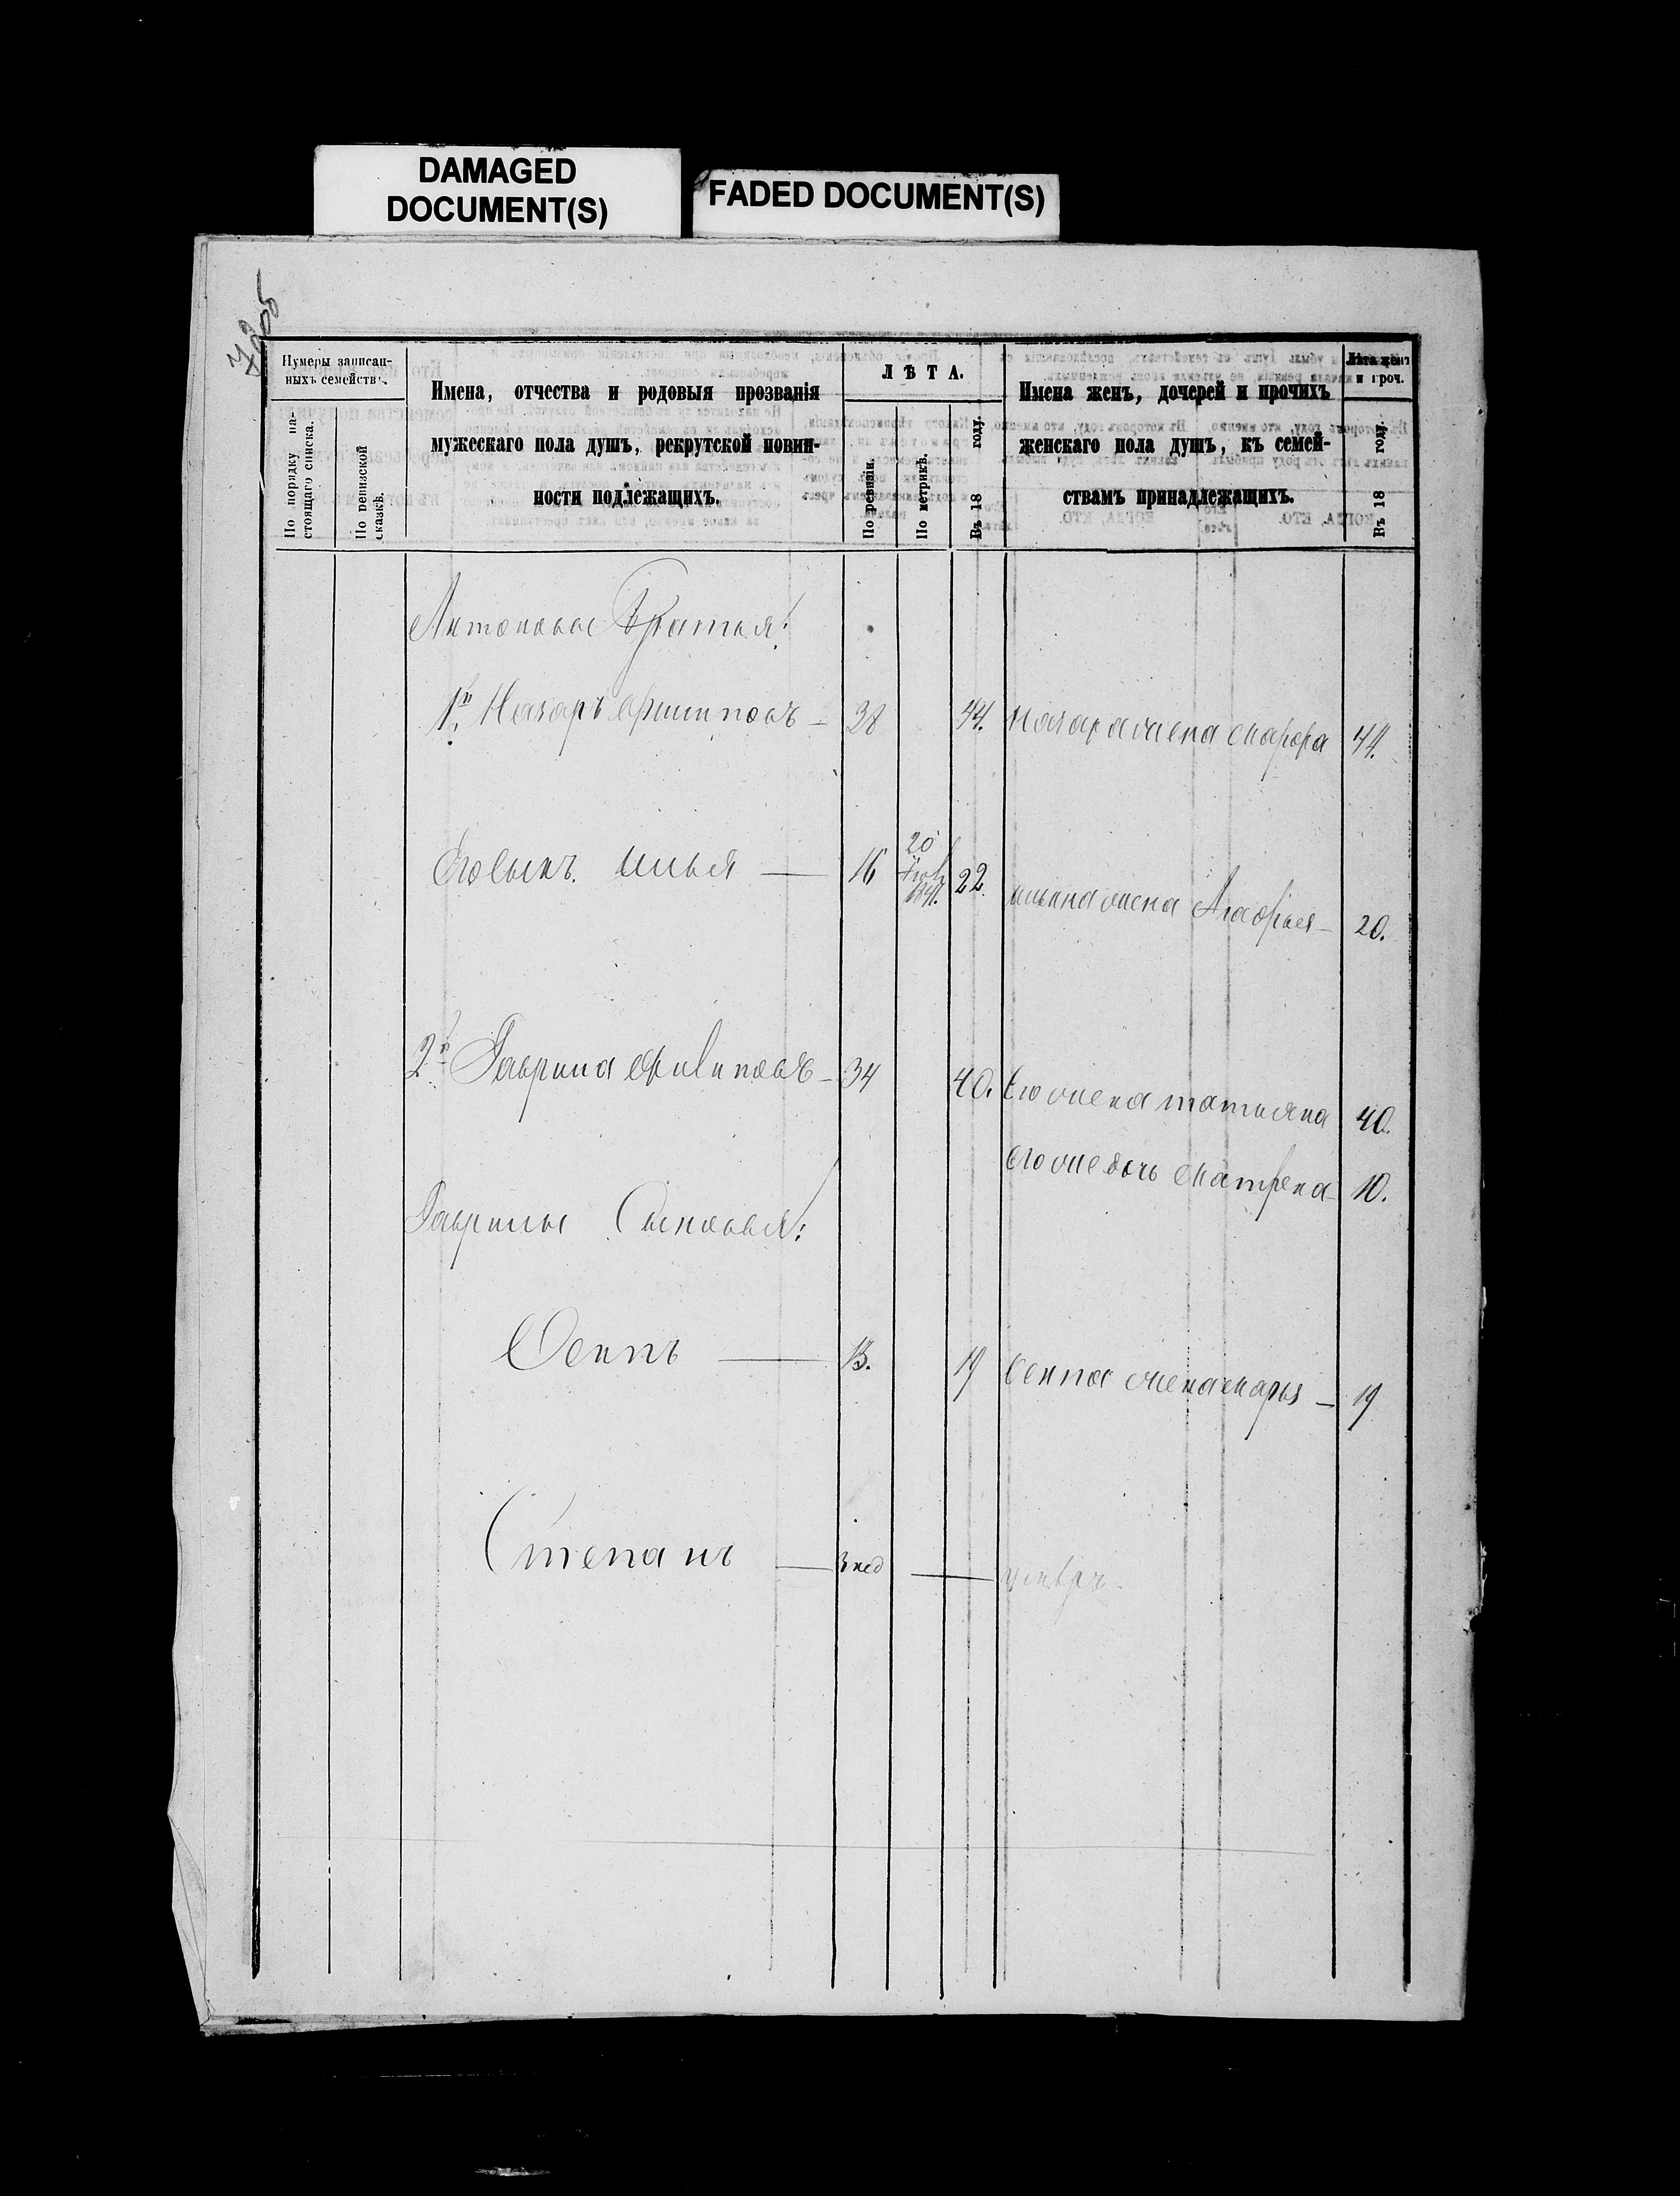 DAMAGED
DOCUMENT(S)
FADED DOCUMENT(S)
Нумеры записан-
ныхъ семействъ.
По порядку на-
стоящаго списка.
По ревизской
сказкѣ.
Имена, отчества и родовыя прозванія
мужескаго пола душъ, рекрутской повин-
ности подлежащихъ.
ЛѢТА.
По ревизіи.
По метрикѣ.
Въ 18 году.
Имена женъ, дочерей и прочихъ
женскаго пола душъ, къ семей-
ствамъ принадлежащихъ.
Лѣта женъ
и проч.
Въ 18 году.
Антоновы Братья:
1й Назаръ Филиповъ – 38 44. Назара жена Марфа 44.
Его сынъ Илья — 16 20 1841. 22. Ильина жена Агафья – 20.
2й Гаврила Филиповъ – 34 40. Его жена Татьяна 40.
его же дочь Матрена 10.
Гаврилы Сыновья:
Осипъ — 13. 19 Осипа жена Марья – 19
Степанъ — 3 нед —